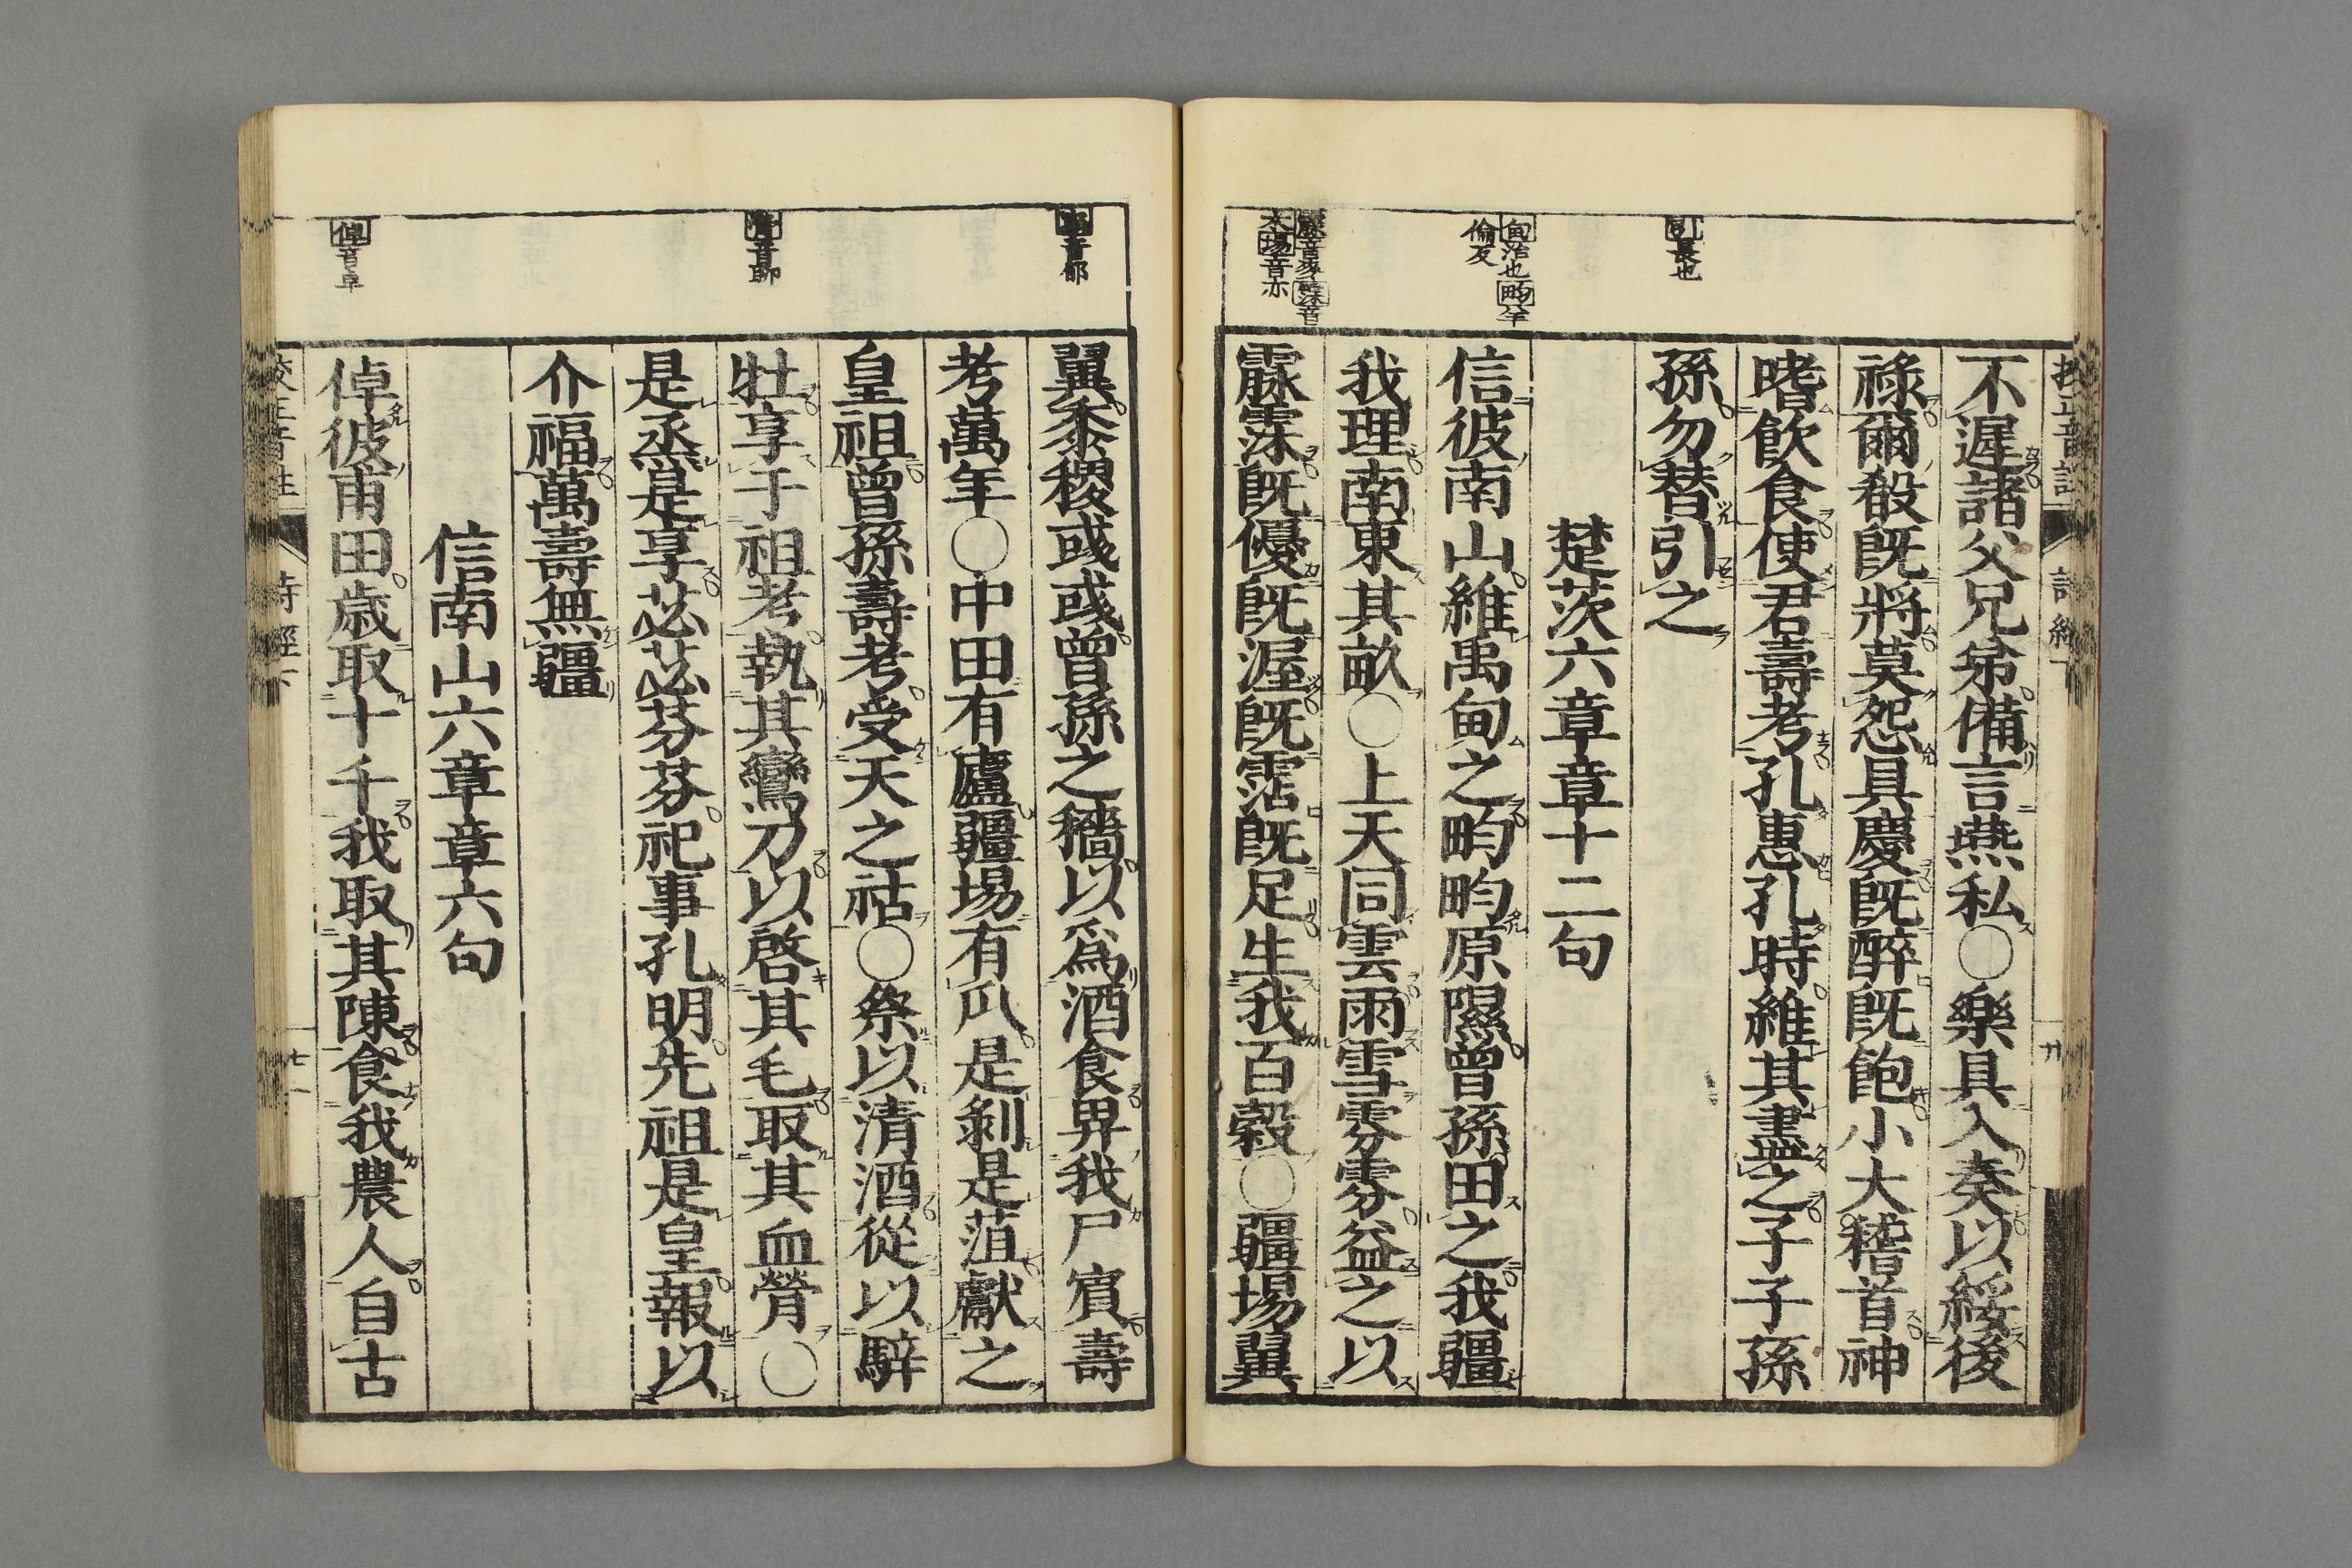 引長也
甸治也畇竿
倫反
霢音麥霂音
木埸音亦
不遲諸父兄弟備言燕私○樂具入奏以綏後
祿爾殽既將莫怨具慶既醉既飽小大稽首神
嗜飲食使君壽考孔惠孔時維其盡之子子孫
孫勿替引之
楚茨六章章十二句
信彼南山維禹甸之畇畇原隰曾孫田之我疆
我理南東其畝○上天同雲雨雪雰雰益之以
霢霂既優既渥既霑既足生我百穀○疆埸翼
音郁
音聊
倬音卓
翼黍稷彧彧曾孫之穡以爲酒食畀我尸賓壽
考萬年○中田有廬疆埸有瓜是剝是菹獻之
皇祖曾孫壽考受天之祜○祭以清酒從以騂
牡享于祖考執其鸞刀以啓其毛取其血膋○
是烝是享苾苾芬芬祀事孔明先祖是皇報以
介福萬壽無疆
信南山六章章六句
倬彼甫田歲取十千我取其陳食我農人自古